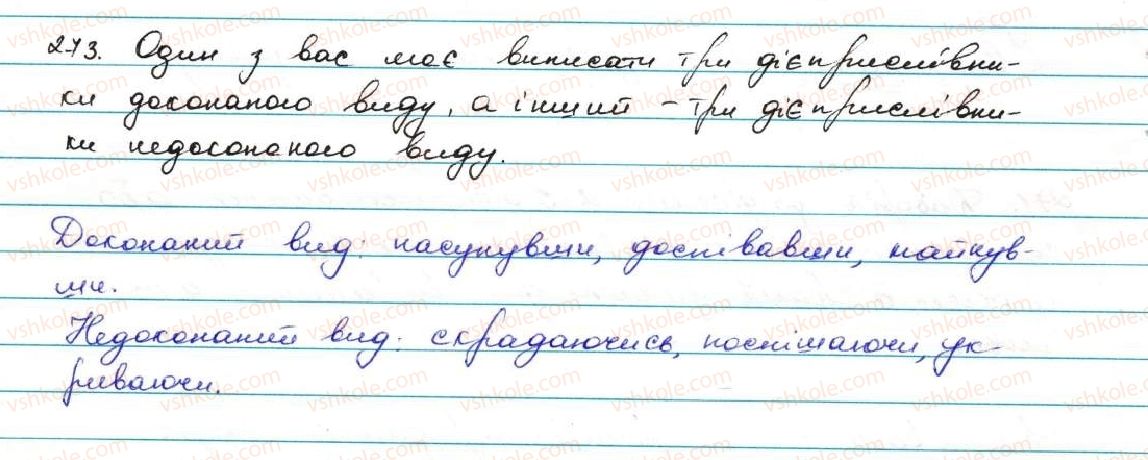 273. Один з вас має виписати три дієприслівни-
ки доконаного виду, а інший - три дієприслівни-
ки недоконаного виду.
Доконаний вид: насунувши, доспівавши, майнув-
ши.
Недоконаний вид: скрадаючись, поспішаючи, ук-
риваючи.